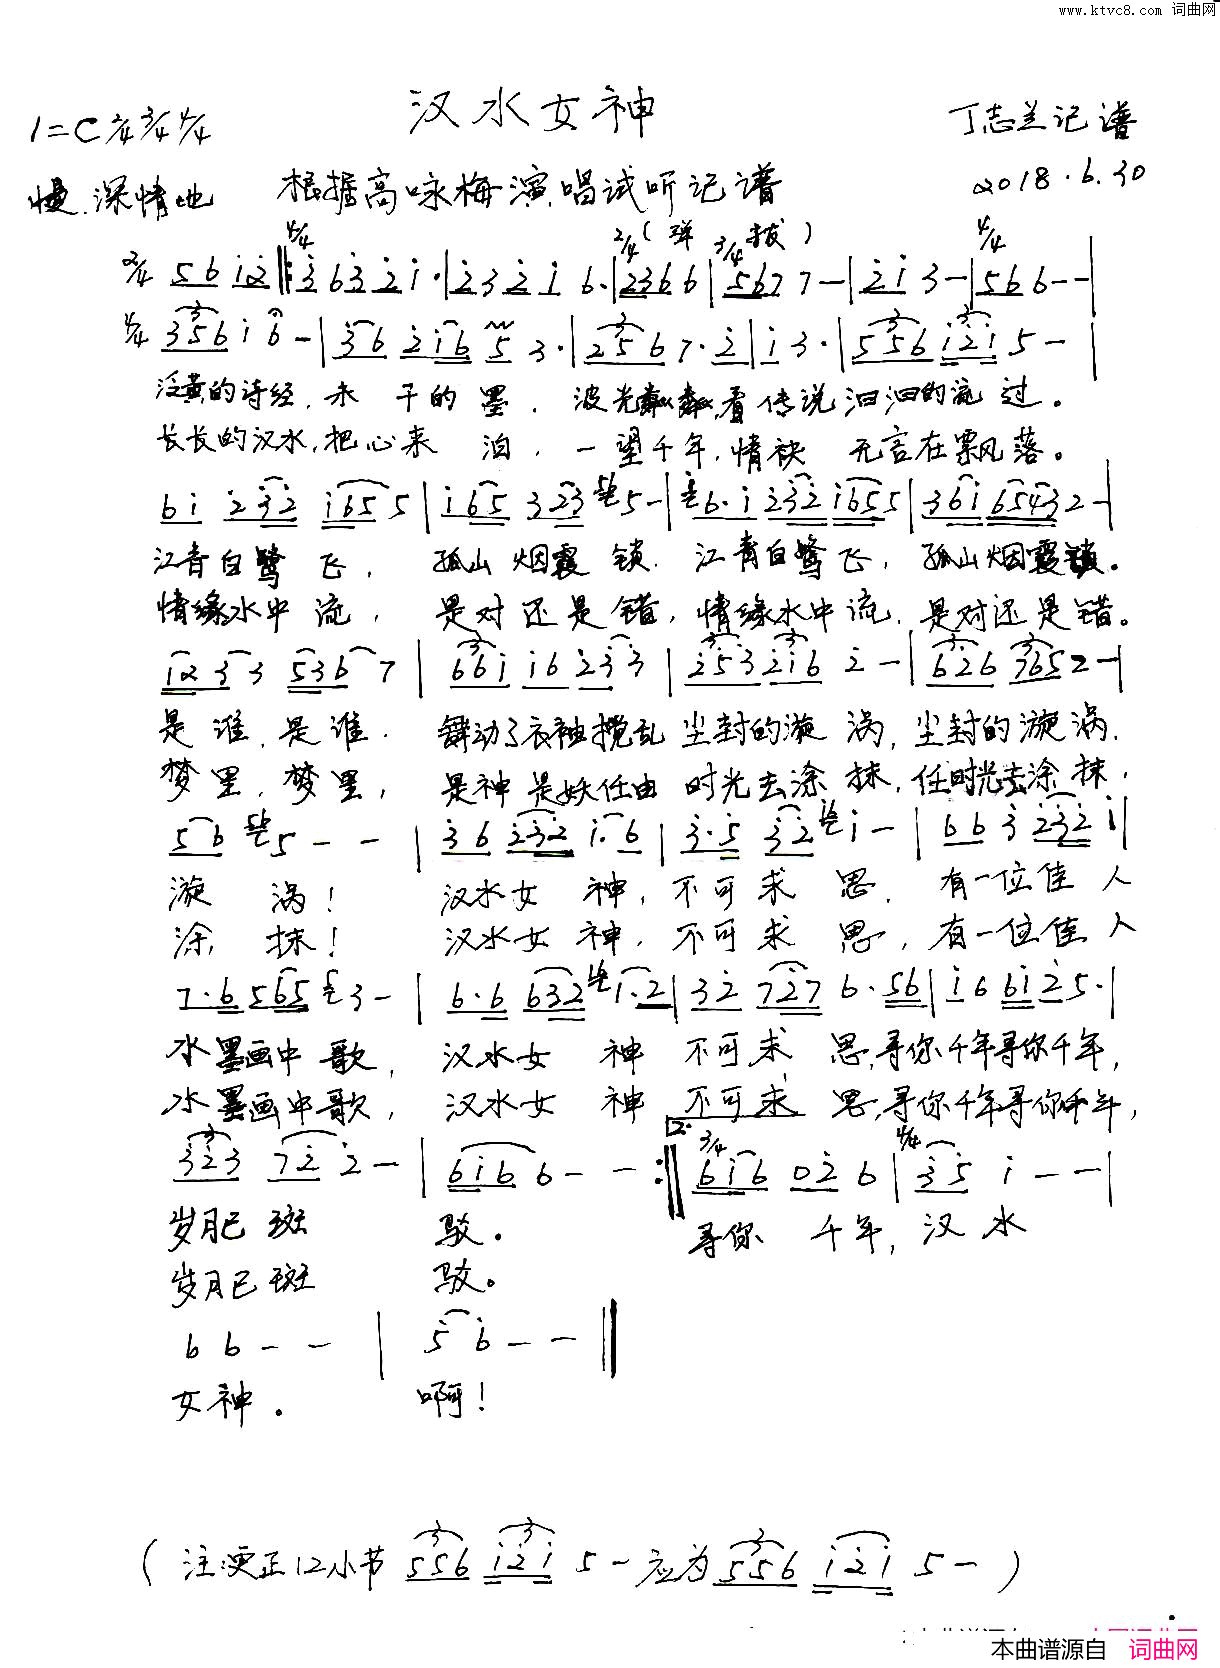 www.ktvc8.com 词曲网
汉水女神
1=C 2/4 3/4 4/4
丁志兰记谱
慢.深情地
根据高咏梅演唱试听记谱
2018.6.30
4/4 2/4 (弹 3/4 拨) 4/4
2/4 5 6 i 2 ‖: 3 6 3 2 i · | 2 3 2 i 6 · | 2 3 6 6 | 5 6 7 7 — | 2 i 3 — | 5 6 6 — — |
4/4 3 5 6 i 6 — | 3 6 2 i 6 5 3 · | 2 5 6 7 · 2 | i 3 · | 5 5 6 i 2 i 5 — |
泛黄的诗经,未干的墨.波光粼粼,看传说汩汩的流过。
长长的汉水,把心来泊,一望千年,情袂无言在飘风落。
6 i 2 3 2 i 6 5 5 | i 6 5 3 2 3 5 — | 6 · i 2 3 2 i 6 5 5 | 3 6 i 6 5 4 3 2 — |
江青白鹭飞,孤山烟霞锁.江青白鹭飞,孤山烟霞锁。
情缘水中流,是对还是错,情缘水中流.是对还是错。
i 2 3 3 5 3 6 7 | 6 6 i i 6 2 3 3 | 2 5 3 2 i 6 2 — | 6 2 6 7 6 5 2 — |
是谁,是谁.舞动了衣袖搅乱尘封的漩涡,尘封的漩涡.
梦里,梦里,是神是妖任由时光去涂抹,任时光去涂抹,
5 6 5 — — | 3 6 2 3 2 i · 6 | 3 · 5 3 2 i — | 6 6 3 2 3 2 i |
漩涡!汉水女神,不可求思.有一位佳人
涂抹!汉水女神,不可求思,有一位佳人
7 · 6 5 6 5 3 — | 6 · 6 6 3 2 i · 2 | 3 2 7 2 7 6 · 5 6 | i 6 6 i 2 5 · |
水墨画中歌,汉水女神不可求思,寻你千年寻你千年,
水墨画中歌,汉水女神不可求思,寻你千年寻你千年,
2. 3/4 4/4
3 2 3 7 2 2 — | 6 i 6 6 — — :‖ 6 i 6 0 2 6 | 3 5 i — — |
岁月已斑驳。寻你千年,汉水
岁月已斑驳。
6 6 — — | 5 6 — — ‖
女神。啊!
(注:更正12小节 5 5 6 i 2 i 5 — 应为 5 5 6 i 2 i 5 — )
本曲谱源自 词曲网